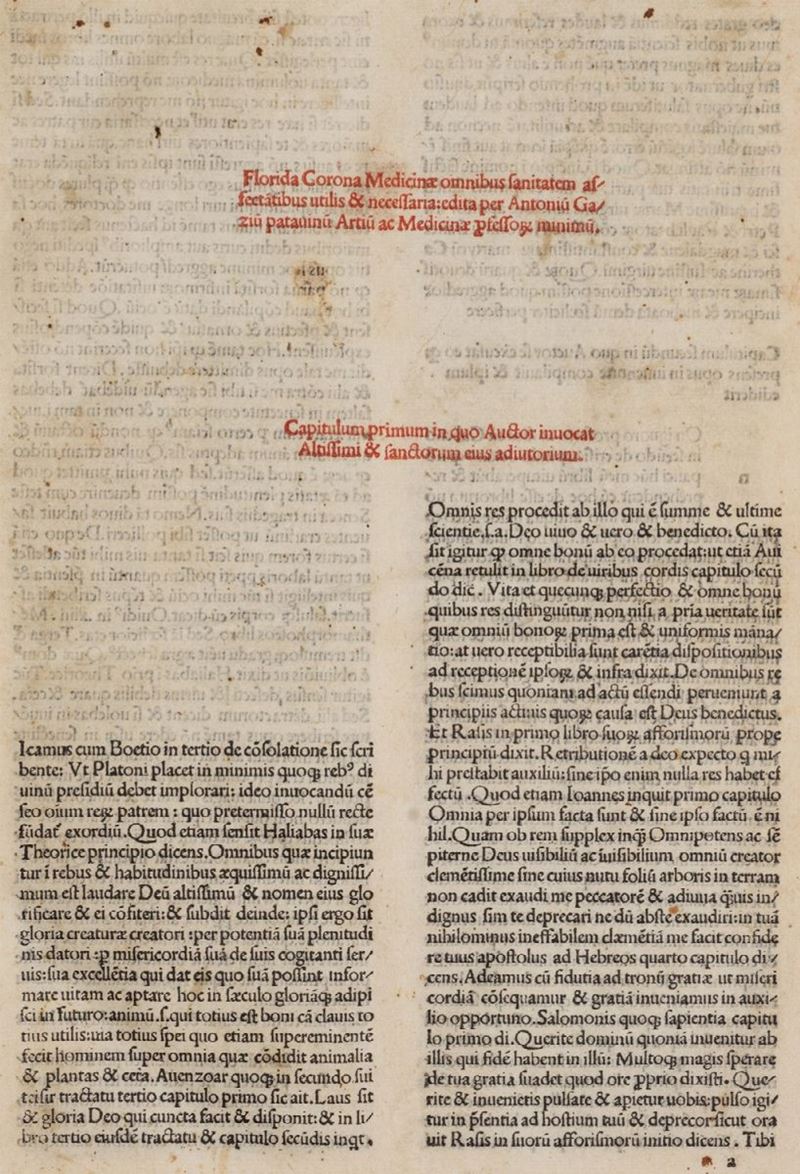 Florida Corona Medicinæ omnibus sanitatem af⸗
fectātibus utilis & necessaria: edita per Antoniū Ga⸗
ziū patauinū Artiū ac Medicinæ ꝓfessoꝝ minimū.
Capitulum primum in quo Auctor inuocat
Altissimi & sanctorum eius adiutorium.
Icamus cum Boetio in tertio de cōsolatione sic scri
bente: Vt Platoni placet in minimis quoqꝫ rebꝰ di
uinū presidiū debet implorari: ideo inuocandū cē
seo oiūm reꝝ patrem : quo pretermisso nullū recte
fūdat exordiū. Quod etiam sensit Haliabas in suæ
Theorice principio dicens. Omnibus quæ incipiun
tur ī rebus & habitudinibus æquissimū ac dignissi⸗
mum est laudare Deū altissimū & nomen eius glo
rificare & ei cōfiteri: & subdit deinde: ipsi ergo sit
gloria creaturæ creatori : per potentiā suā plenitudi
nis datori : ꝓ misericordiā suā de suis cogitanti ser⸗
uis: sua excellētia qui dat eis quo suā possint infor⸗
mare uitam ac aptare hoc in sæculo gloriāqꝫ adipi
sci in futuro: animū.s. qui totius est boni cā clauis to
tius utilis: uia totius spei quo etiam supereminentē
fecit hominem super omnia quæ cōdidit animalia
& plantas & cetera. Auenzoar quoqꝫ in secundo sui
teisir tractatu tertio capitulo primo sic ait. Laus sit
& gloria Deo qui cuncta facit & disponit: & in li⸗
bro tertio eiusdē tractatu & capitulo secūdis inqt.
Omnis res procedit ab illo qui ē summe & ultime
scientie.s.a. Deo uiuo & uero & benedicto. Cū ita
sit igitur ꝙ omne bonū ab eo procedat: ut etiā Aui
cēna retulit in libro de uiribus cordis capitulo secū
do dic̄. Vita et quecunqꝫ perfectio & omne bonū
quibus res distinguūtur non nisi a pria ueritate sūt
quæ omniū bonoꝝ prima est & uniformis māna⸗
tio: at uero receptibilia sunt carētia dispositionibus
ad receptionē ipsoꝝ & infra dixit. De omnibus re
bus scimus quoniam ad actū essendi perueniunt a
principiis actiuis quoꝝ causa est Deus benedictus.
Et Rasis in primo libro suoꝝ afforismorū prope
principiū dixit. Retributionē a deo expecto q mi⸗
hi prestabit auxiliū: sine ipo enim nulla res habet ef
fectū. Quod etiam Ioannes inquit primo capitulo
Omnia per ipsum facta sunt & sine ipso factū ē ni
hil. Quam ob rem supplex inqꝫ Omnipotens ac sē
piterne Deus uisibiliū ac īuisibilium omniū creator
clemētissime sine cuius nutu foliū arboris in terram
non cadit exaudi me peccatorē & adiuua q̄uis in⸗
dignus sim te deprecari ne dū abste exaudiri: in tuā
nihilominus ineffabilem clæmētiā me facit confide
re tuus apostolus ad Hebreos quarto capitulo di⸗
cens. Adeamus cū fidutia ad tronū gratiæ ut miseri
cordiā cōsequamur & gratiā inueniamus in auxi⸗
lio opportuno. Salomonis quoqꝫ sapientia capitu
lo primo di. Querite dominū quoniā inuenitur ab
illis qui fidē habent in illū: Multoqꝫ magis sperare
de tua gratia suadet quod ore ꝓprio dixisti. Que⸗
rite & inuenietis pulsate & apietur uobis: pulso igi⸗
tur in p̄sentia ad hostium tuū & deprecor sicut ora
uit Rasis in suorū afforismorū initio dicens. Tibi
a